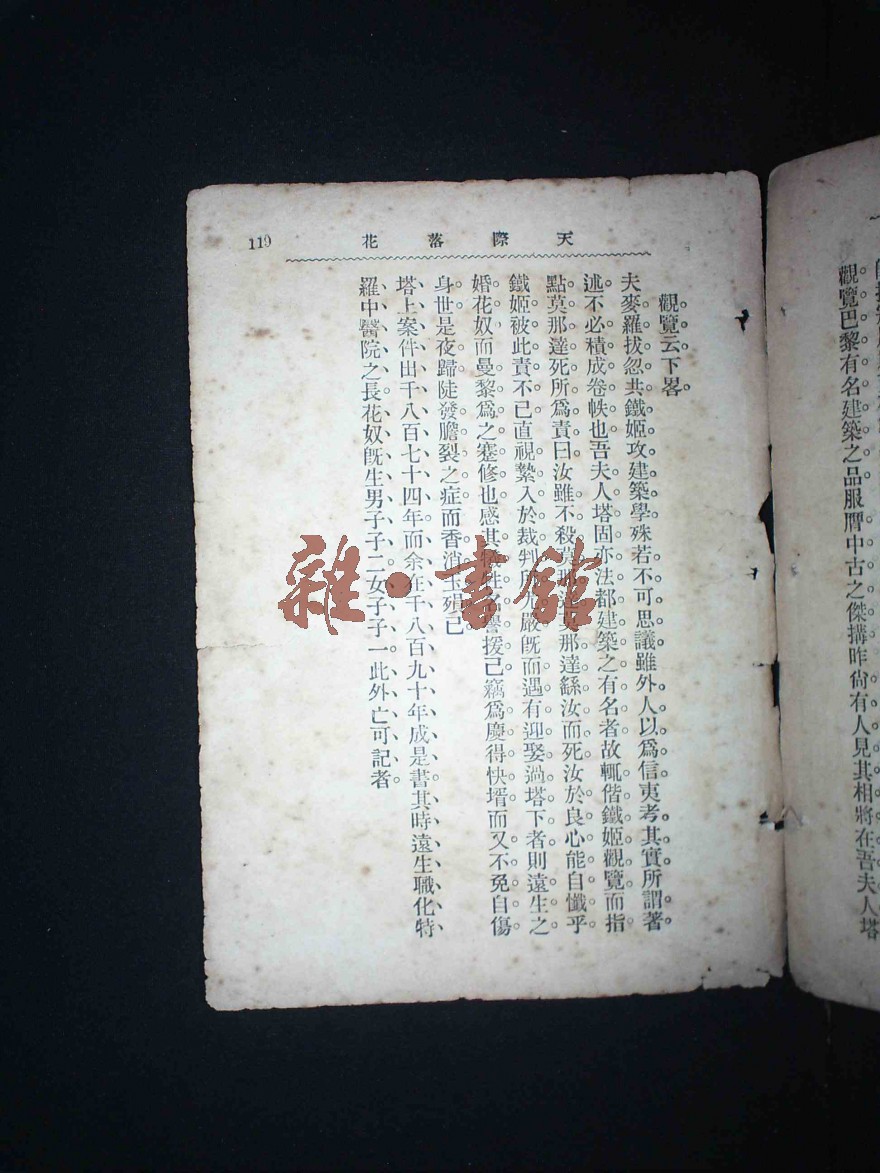 天際落花
119
觀覽云下畧
夫麥羅拔忽共鐵姬攻建築學殊若不可思議雖外人以爲信夷考其實所謂著
述不必積成卷帙也吾夫人塔固亦法都建築之有名者故輒偕鐵姬觀覽而指
點莫那達死所爲責曰汝雖不殺莫那達莫那達繇汝而死汝於良心能自懺乎
鐵姬被此責不已直視縶入於裁判所尤嚴旣而遇有迎娶過塔下者則遠生之
婚花奴而曼黎爲之蹇修也感其犧牲名譽援己竊爲慶得快壻而又不免自傷
身世是夜歸陡發膽裂之症而香消玉殞已
塔上案件出千八百七十四年而余在千八百九十年成是書其時遠生職化特
羅中醫院之長花奴旣生男子子二女子子一此外亡可記者
觀覽巴黎有名建築之品服膺中古之傑搆昨尙有人見其相將在吾夫人塔
雜·書館